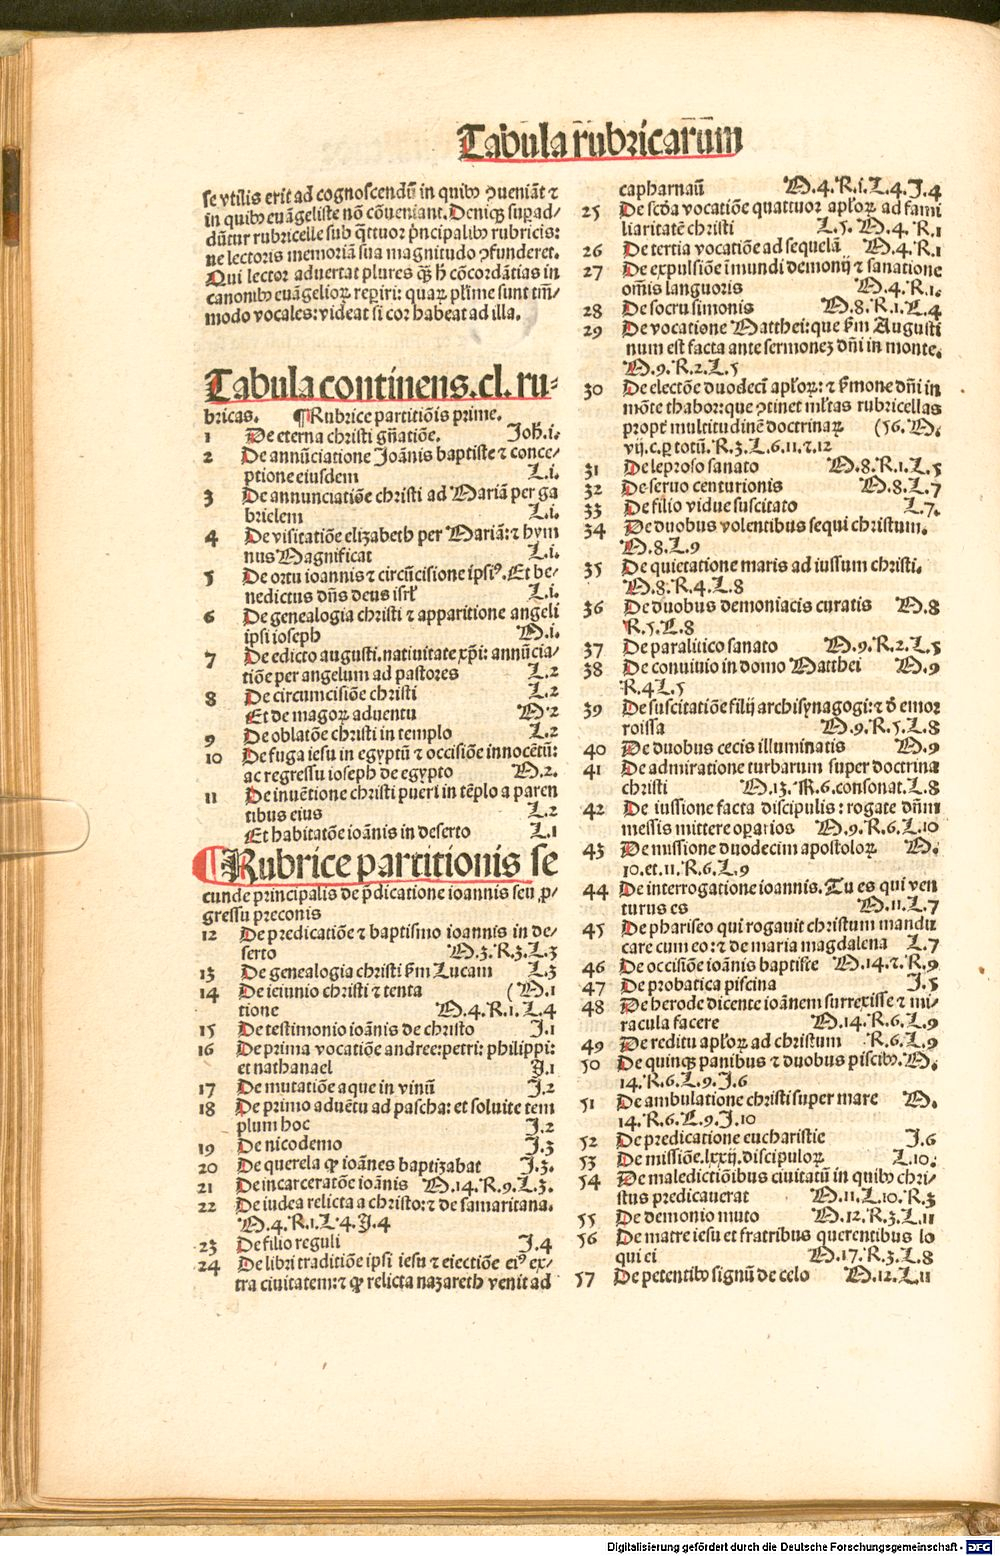 Tabula rubricarum
se vtilis erit ad cognoscendū in quibꝰ ꝯueniāt ⁊
in quibꝰ euāgeliste nō cōueniant. Deniqꝫ supad/
dūtur rubricelle sub qͣttuor pͥncipalibꝰ rubricis:
ne lectoris memoriā sua magnitudo ꝯfunderet.
Qui lector aduertat plures qͣꝫ hͨ cōcordātias in
canonibꝰ euāgelioꝝ reꝑiri: quaꝝ plͥme sunt tm̄/
modo vocales: videat si cor habeat ad illa.
Tabula continens .cl. ru⸗
bricas. ¶ Rubrice partitiōis prime.
1 De eterna christi gn̄atiōe. Joh̄.i.
2 De annūciatione Joānis baptiste ⁊ conce/
ptione eiusdem L.i.
3 De annunciatiōe christi ad Mariā per ga
brielem L.i.
4 De visitatiōe elizabeth per Mariā: ⁊ hym
nus Magnificat L.i.
5 De ortu ioannis ⁊ circūcisione ipsiꝰ. Et be/
nedictus dn̄s deus isrł L.i.
6 De genealogia christi ⁊ apparitione angeli
ipsi ioseph M.i.
7 De edicto augusti. natiuitate xp̄i: annūcia/
tiōe per angelum ad pastores L.2
8 De circumcisiōe christi L.2
Et de magoꝝ aduentu M.2
9 De oblatōe christi in templo L.2
10 De fuga iesu in egyptū ⁊ occisiōe innocētū:
ac regressu ioseph de egypto M.2.
11 De inuētione christi pueri in tēplo a paren
tibus eius L.2
Et habitatōe ioānis in deserto L.1
¶ Rubrice partitionis se
cunde principalis de p̄dicatione ioannis seu ꝓ/
gressu preconis
12 De predicatiōe ⁊ baptismo ioannis in de/
serto M.3.R.3.L.3
13 De genealogia christi ẜm Lucam L.3
14 De ieiunio christi ⁊ tenta (M.1
tione M.4.R.1.L.4
15 De testimonio ioānis de christo J.1
16 De prima vocatiōe andree: petri: philippi:
et nathanael J.1
17 De mutatiōe aque in vinū J.2
18 De primo aduētu ad pascha: et soluite tem
plum hoc J.2
19 De nicodemo J.3
20 De querela ꝙ ioānes baptizabat J.3.
21 De incarceratōe ioānis M.14.R.9.L.3.
22 De iudea relicta a christo: ⁊ de samaritana.
M.4.R.1.L.4.J.4
23 De filio reguli J.4
24 De libri traditiōe ipsi iesu ⁊ eiectiōe eiꝰ ex/
tra ciuitatem: ⁊ ꝙ relicta nazareth venit ad
capharnaū M.4.R.i.L.4.J.4
25 De scd̄a vocatiōe quattuor apłoꝝ ad fami
liaritatē christi L.5.M.4.R.1
26 De tertia vocatiōe ad sequelā M.4.R.1
27 De expulsiōe īmundi demonij ⁊ sanatione
om̄is languoris M.4.R.1.
28 De socru simonis M.8.R.1.L.4
29 De vocatione Matthei: que ẜm Augusti
num est facta ante sermonez dn̄i in monte.
M.9.R.2.L.5
30 De electōe duodecī apłoꝝ: ⁊ ẜmone dn̄i in
mōte thabor: que ꝯtinet ml̄tas rubricellas
proptͤ multitudinē doctrinaꝝ (56.M.
vij.c.ꝑ totū.R.3.L.6.11.⁊.12
31 De leproso sanato M.8.R.1.L.5
32 De seruo centurionis M.8.L.7
33 De filio vidue suscitato L.7.
34 De duobus volentibus sequi christum.
M.8.L.9
35 De quietatione maris ad iussum christi.
M.8.R.4.L.8
36 De duobus demoniacis curatis M.8
R.5.L.8
37 De paralitico sanato M.9.R.2.L.5
38 De conuiuio in domo Matthei M.9
R.4L.5
39 De suscitatiōe filij archisynagogi: ⁊ d̄ emor
roissa M.9.R.5.L.8
40 De duobus cecis illuminatis M.9
41 De admiratione turbarum super doctrina
christi M.13.R.6.consonat.L.8
42 De iussione facta discipulis: rogate dn̄m
messis mittere oꝑarios M.9.R.6.L.10
43 De missione duodecim apostoloꝝ M.
10.et.11.R.6.L.9
44 De interrogatione ioannis. Tu es qui ven
turus es M.11.L.7
45 De phariseo qui rogauit christum mandu
care cum eo: ⁊ de maria magdalena L.7
46 De occisiōe ioānis baptiste M.14.⁊.R.9
47 De probatica piscina J.5
48 De herode dicente ioānem surrexisse ⁊ mi/
racula facere M.14.R.6.L.9
49 De reditu apłoꝝ ad christum R.6.L.9
50 De quinqꝫ panibus ⁊ duobus piscibꝰ. M.
14.R.6.L.9.J.6
51 De ambulatione christi super mare M.
14.R.6.L.9.J.10
52 De predicatione eucharistie J.6
53 De missiōe.lxxij.discipuloꝝ L.10.
54 De maledictiōibus ciuitatū in quibꝰ chri/
stus predicauerat M.11.L.10.R.3
55 De demonio muto M.12.R.3.L.11
56 De matre iesu et fratribus querentibus lo
qui ei M.17.R.3.L.8
57 De petentibꝰ signū de celo M.12.L.11
Digitalisierung gefördert durch die Deutsche Forschungsgemeinschaft - DFG